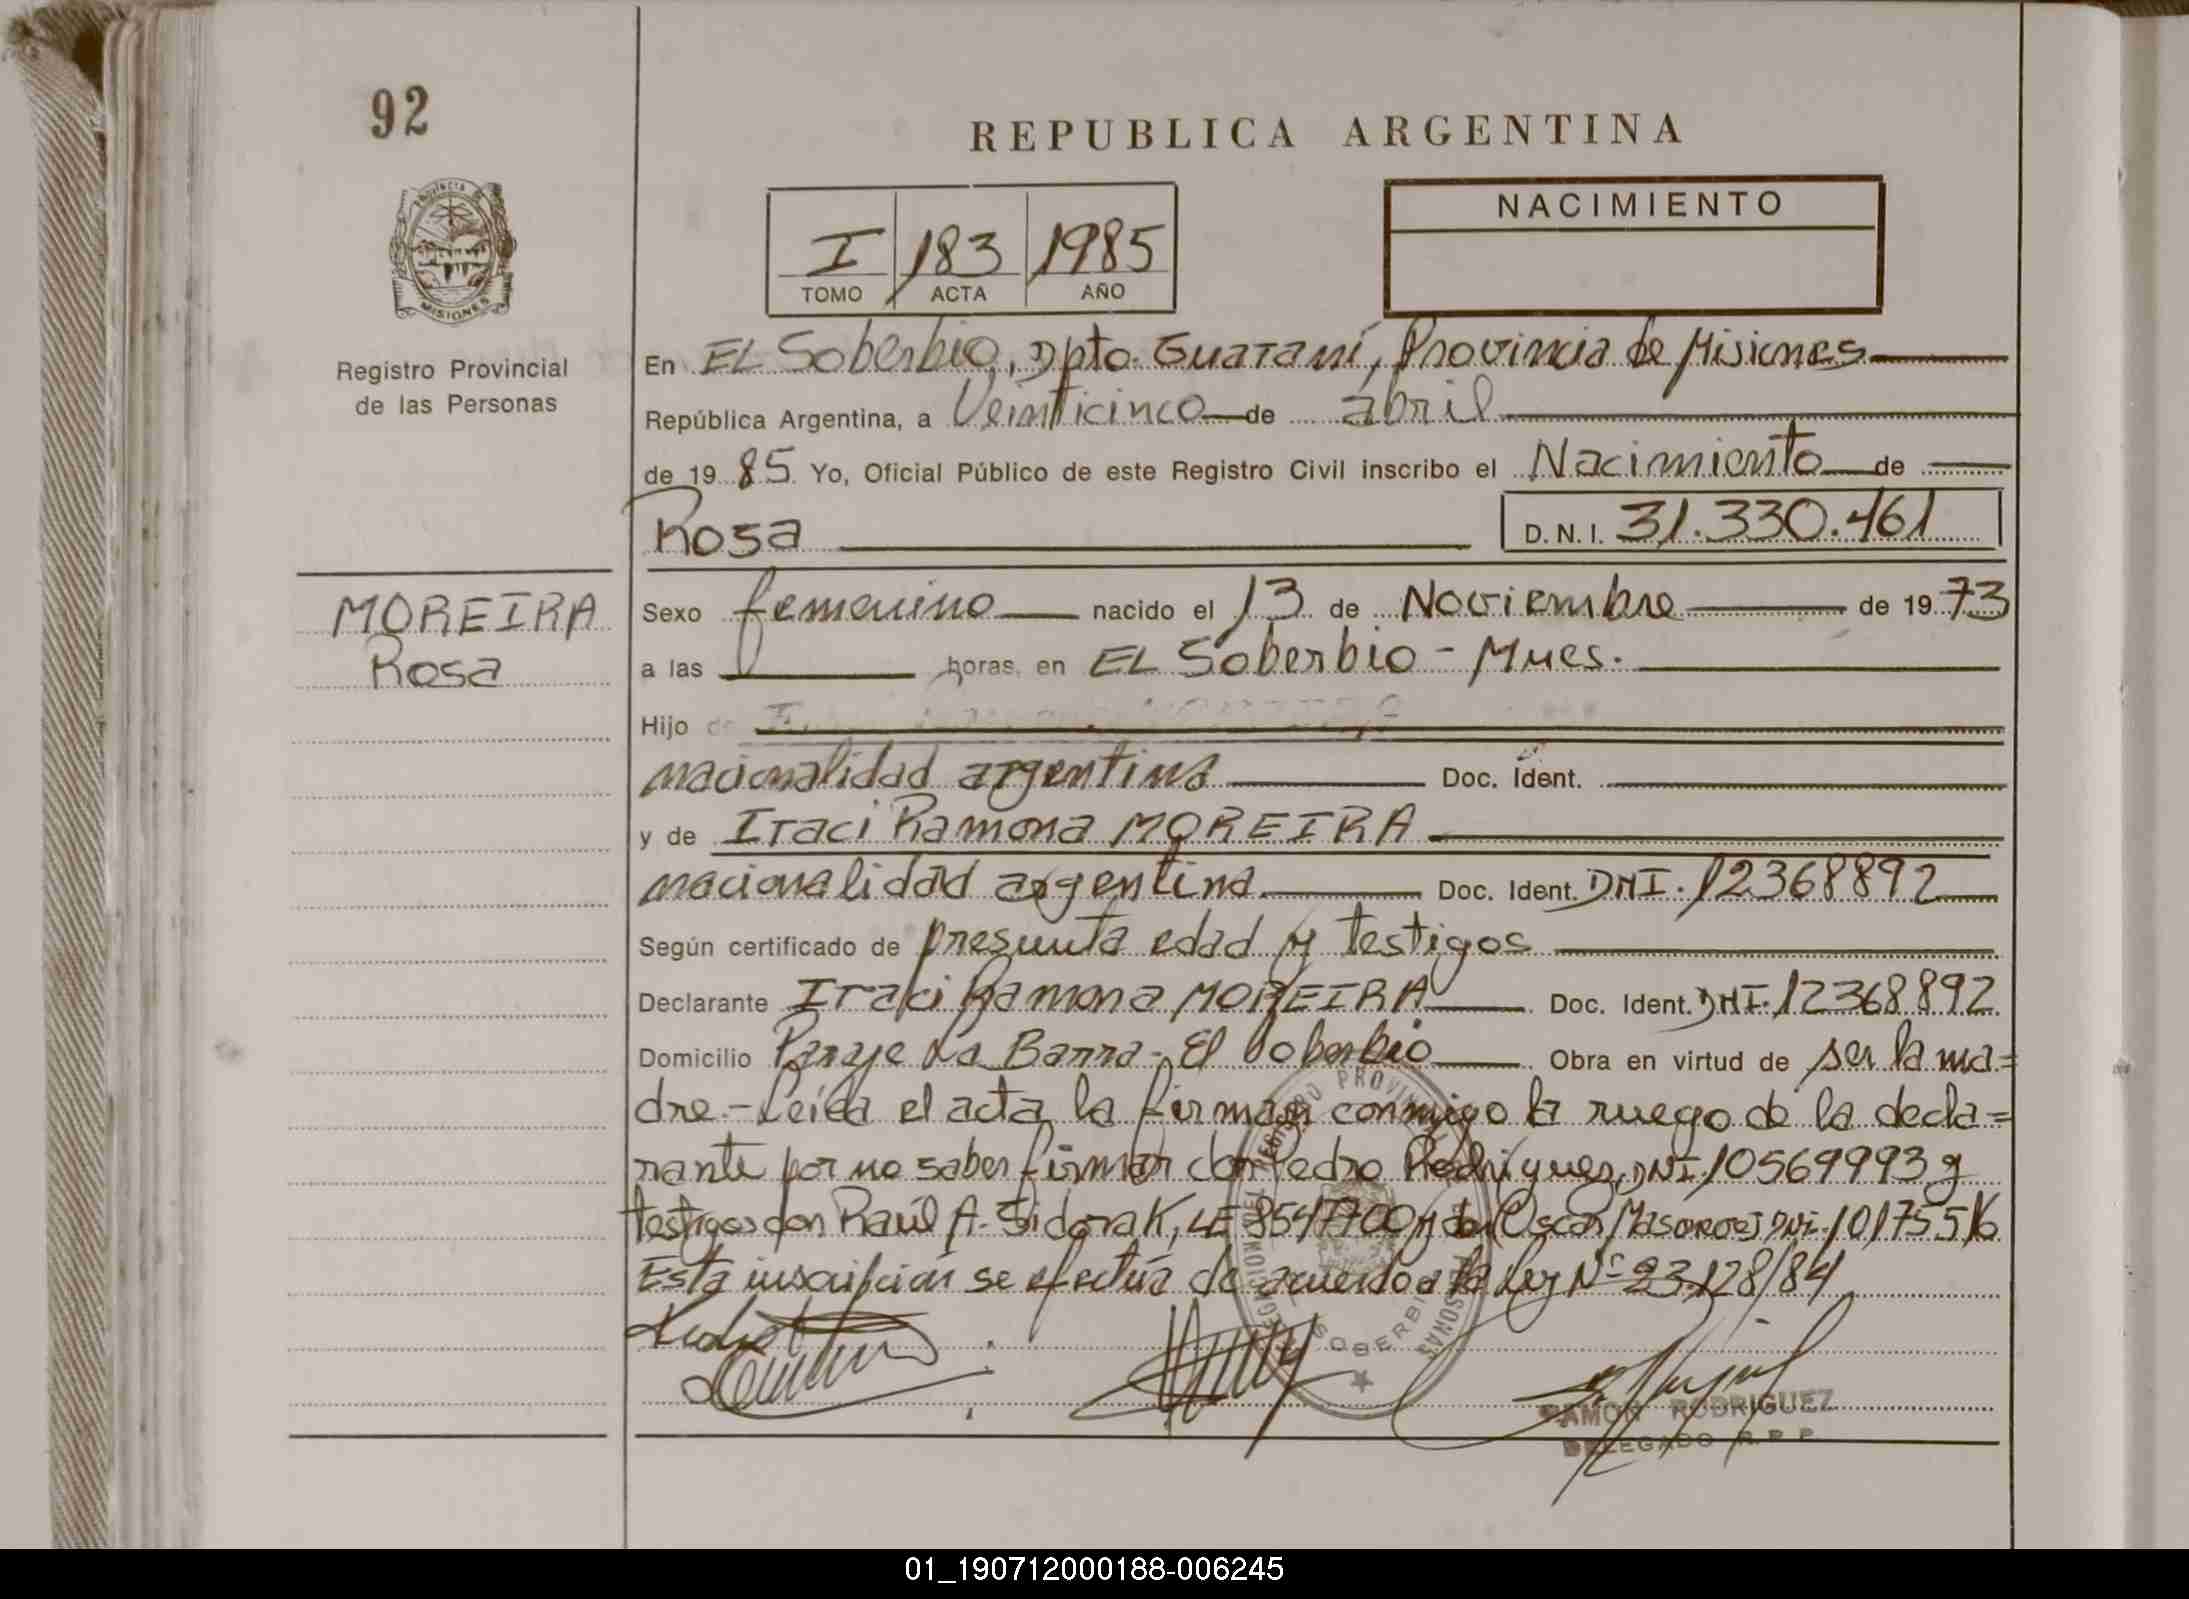 92
REPUBLICA ARGENTINA
PROVINCIA DE
MISIONES
Registro Provincial
de las Personas
I 183 1985
TOMO ACTA AÑO
NACIMIENTO
En EL Soberbio, Dpto. Guaraní, Provincia de Misiones
República Argentina, a Veinticinco de abril
de 1985 Yo, Oficial Público de este Registro Civil inscribo el Nacimiento de
Rosa D.N.I. 31.330.461
MOREIRA
Rosa
Sexo femenino nacido el 13 de Noviembre de 1973
a las horas, en EL Soberbio - Mnes.
Hijo de
nacionalidad argentina Doc. Ident.
y de Iraci Ramona MOREIRA
nacionalidad argentina. Doc. Ident. DNI. 12368892
Según certificado de presunta edad y testigos
Declarante Iraci Ramona MOREIRA Doc. Ident. DNI. 12368892
Domicilio Paraje La Barra - El Soberbio Obra en virtud de ser la ma=
dre.- Leída el acta la firman conmigo a ruego de la decla=
rante por no saber firmar don Pedro Rodriguez, DNI. 10569993 y
testigos don Raúl A. Sidorak, LE 8547700 y don Oscar DNI. 10175516
Esta inscripción se efectúa de acuerdo a la Ley Nº 23.128/84
RAMON RODRIGUEZ
DELEGADO R.P.P.
01_190712000188-006245